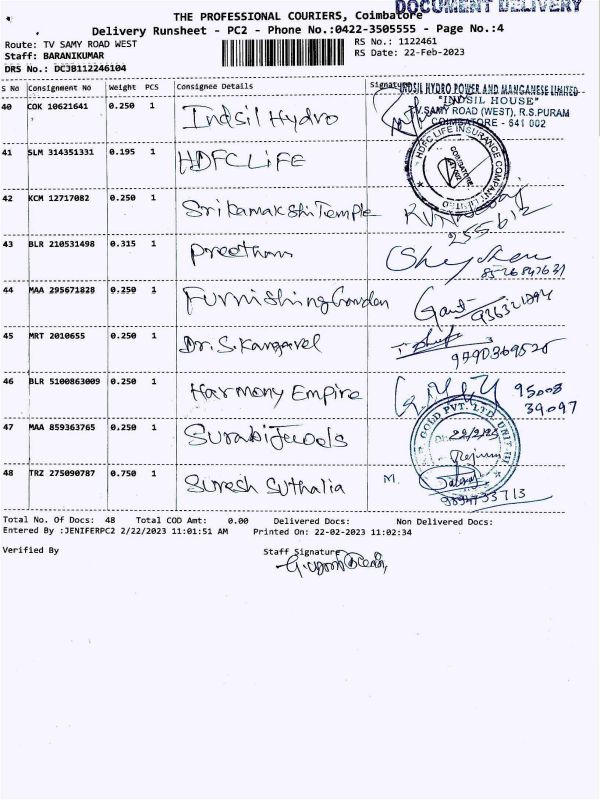 DOCUMENT DELIVERY
THE PROFESSIONAL COURIERS, Coimbatore
Delivery Runsheet - PC2 - Phone No.:0422-3505555 - Page No.:4
Route: TV SAMY ROAD WEST
RS No.: 1122461
Staff: BARANIKUMAR
RS Date: 22-Feb-2023
DRS No.: DCJB112246104
S No Consignment No Weight PCS Consignee Details Signature
INDSIL HYDRO POWER AND MANGANESE LIMITED
"INDSIL HOUSE"
T.V.SAMY ROAD (WEST), R.S.PURAM
COIMBATORE - 641 002
40 COK 10621641 0.250 1 Indsil Hydro
41 SLM 314351331 0.195 1 HDFC LIFE
HDFC LIFE INSURANCE COMPANY LIMITED
COIMBATORE
42 KCM 12717082 0.250 1 Sri Kamakshi Temple
255612
43 BLR 210531498 0.315 1 Preetham
44 MAA 295671828 0.250 1 Furnishing Garden
45 MRT 2010655 0.250 1 Dr. S. Kangavel
46 BLR 5100863009 0.250 1 Harmony Empire
95008
39097
47 MAA 859363765 0.250 1 Surabi Jewels
GOLD PVT. LTD. UNIT-III
22/2/23
48 TRZ 275090787 0.750 1 Suresh Suthalia
M.
Total No. Of Docs: 48 Total COD Amt: 0.00 Delivered Docs: Non Delivered Docs:
Entered By :JENIFERPC2 2/22/2023 11:01:51 AM Printed On: 22-02-2023 11:02:34
Verified By
Staff Signature